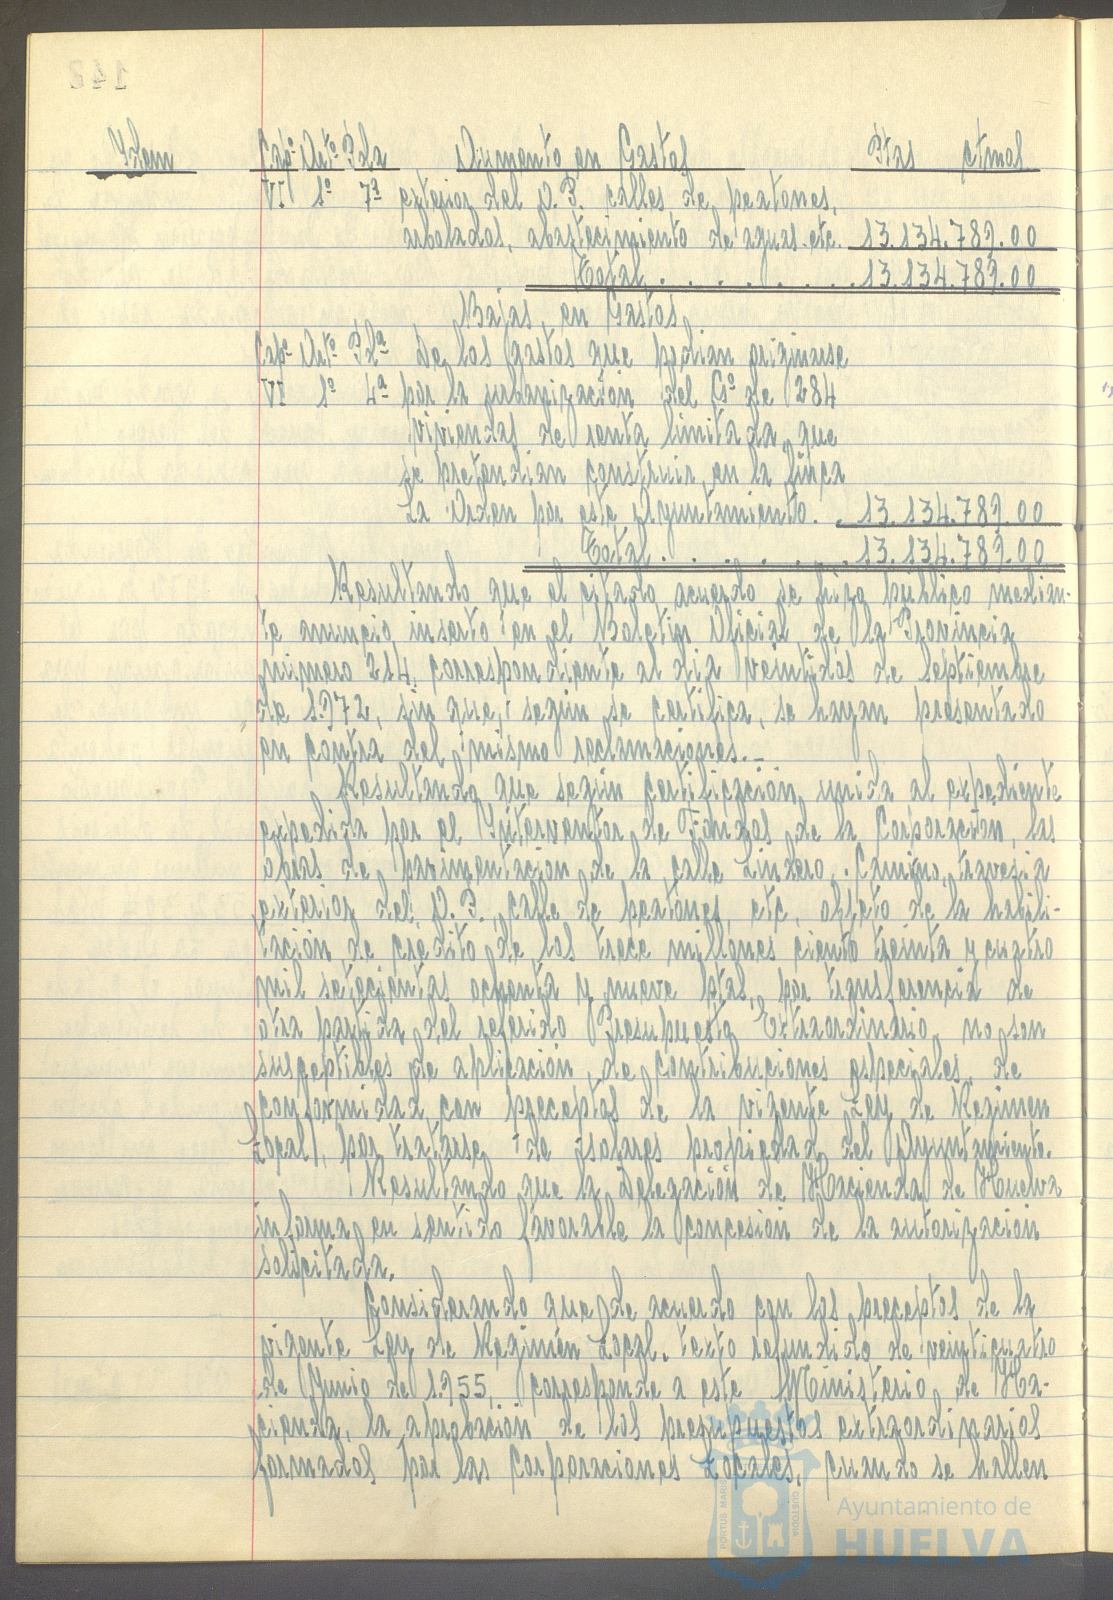 Idem Cap.º Art.º Pda Aumento en Gastos Ptas ctmos.
VI 1º 7ª exterior del O.P. calles de peatones,
arbolados, abastecimiento de aguas etc. 13.134.789.00
Total . . . . . . . . 13.134.789.00
Bajas en Gastos
Cap.º Art.º Pdª De los Gastos que podian originarse
VI 1º 4ª por la urbanización del Gº de 284
viviendas de renta limitada que
se pretendian construir en la finca
La Orden por este Ayuntamiento. . 13.134.789.00
Total . . . . . . . . 13.134.789.00
Resultando que el citado acuerdo se hizo público median-
te anuncio inserto en el Boletin Oficial de la Provincia
número 214 correspondiente al dia veintidos de Septiembre
de 1.972, sin que, según se certifica, se hayan presentado
en contra del mismo reclamaciones.-
Resultando que según certificación unida al expediente
expedida por el Interventor de Fondos de la Corporación, las
obras de pavimentacion de la calle Lindero, Camino, travesia
exterior del O.P., calle de peatones, etc, objeto de la habili-
tación de crédito de los trece millones ciento treinta y cuatro
mil setecientas ochenta y nueve ptas, por transferencia de
otra partida del referido Presupuesto Extraordinario, no son
susceptibles de aplicación de contribuciones especiales, de
conformidad con preceptos de la vigente Ley de Regimen
Local, por tratarse de solares propiedad del Ayuntamiento.
Resultando que la Delegación de Hacienda de Huelva
informa en sentido favorable la concesión de la autorización
solicitada.
Considerando que de acuerdo con los preceptos de la
vigente Ley de Regimen Local, texto refundido de veinticuatro
de Junio de 1.955, corresponde a este Ministerio de Ha-
cienda, la aprobación de los presupuestos extraordinarios
formados por las Corporaciones Locales, cuando se hallen
PORTUS MARIS CUSTODIA
Ayuntamiento de
HUELVA